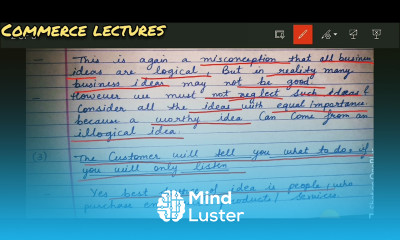 COMMERCE LECTURES
- This is again a misconception that all business
ideas are logical, But in reality many
business ideas may not be good.
- However we must not neglect such ideas &
Consider all the ideas with equal importance
because a worthy idea can come from an
illogical idea.
(2) The Customer will tell you what to do if
you will only listen
- Yes best of idea is people, who
purchase products/ services
Mind
Luster